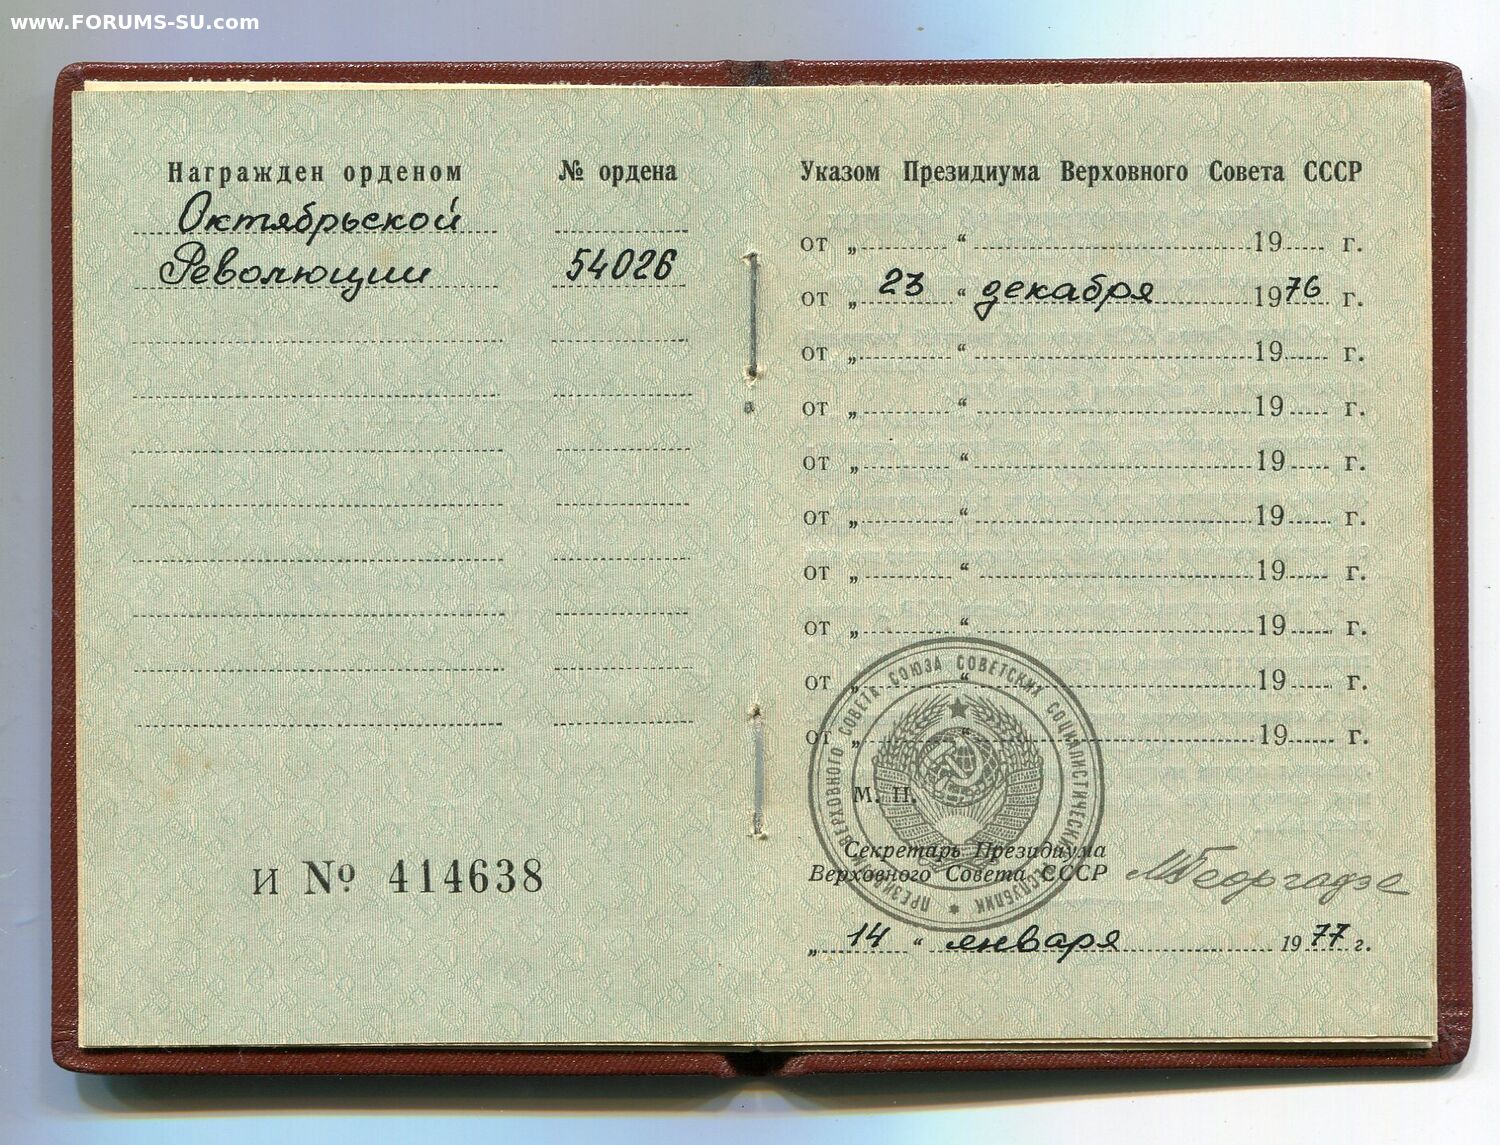 www.FORUMS-SU.com
Награжден орденом № ордена
Октябрьской
Революции 54026
И № 414638
Указом Президиума Верховного Совета СССР
от „ “ 19 г.
от „ 23 “ декабря 1976 г.
от „ “ 19 г.
от „ “ 19 г.
от „ “ 19 г.
от „ “ 19 г.
от „ “ 19 г.
от „ “ 19 г.
от „ “ 19 г.
от „ “ 19 г.
ПРЕЗИДИУМ ВЕРХОВНОГО СОВЕТА СОЮЗА СОВЕТСКИХ СОЦИАЛИСТИЧЕСКИХ РЕСПУБЛИК
М. П.
Секретарь Президиума
Верховного Совета СССР МГеоргадзе
„ 14 “ января 1977 г.